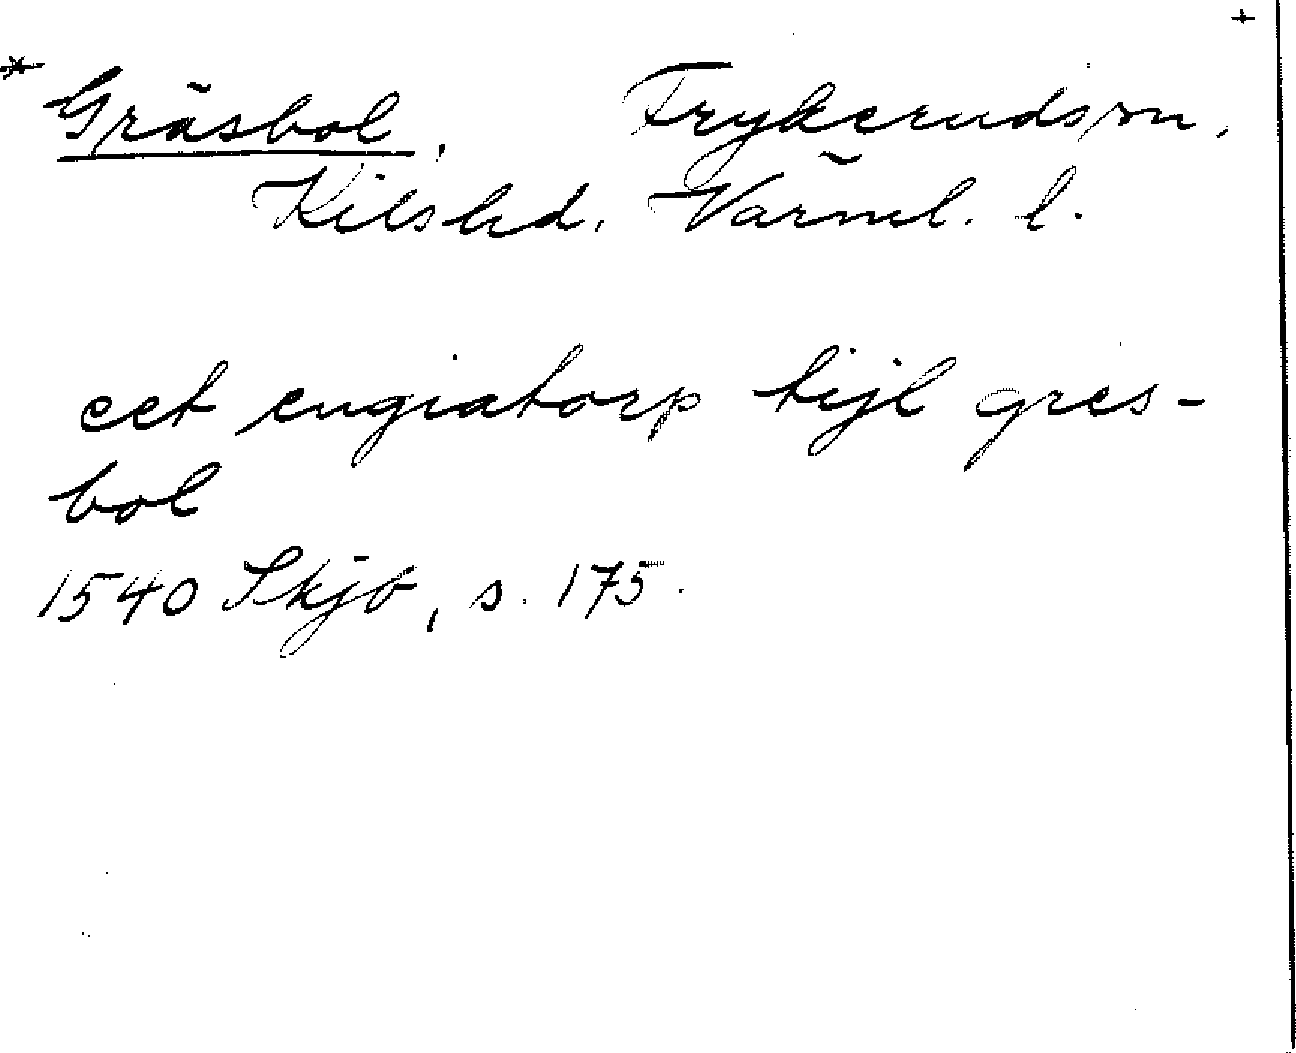 +
* Gräsbol, Frykerudsn,
Kilshd, Värml. l.
eet engiatorp tijl gres-
bol
1540 Skjb, s. 175.